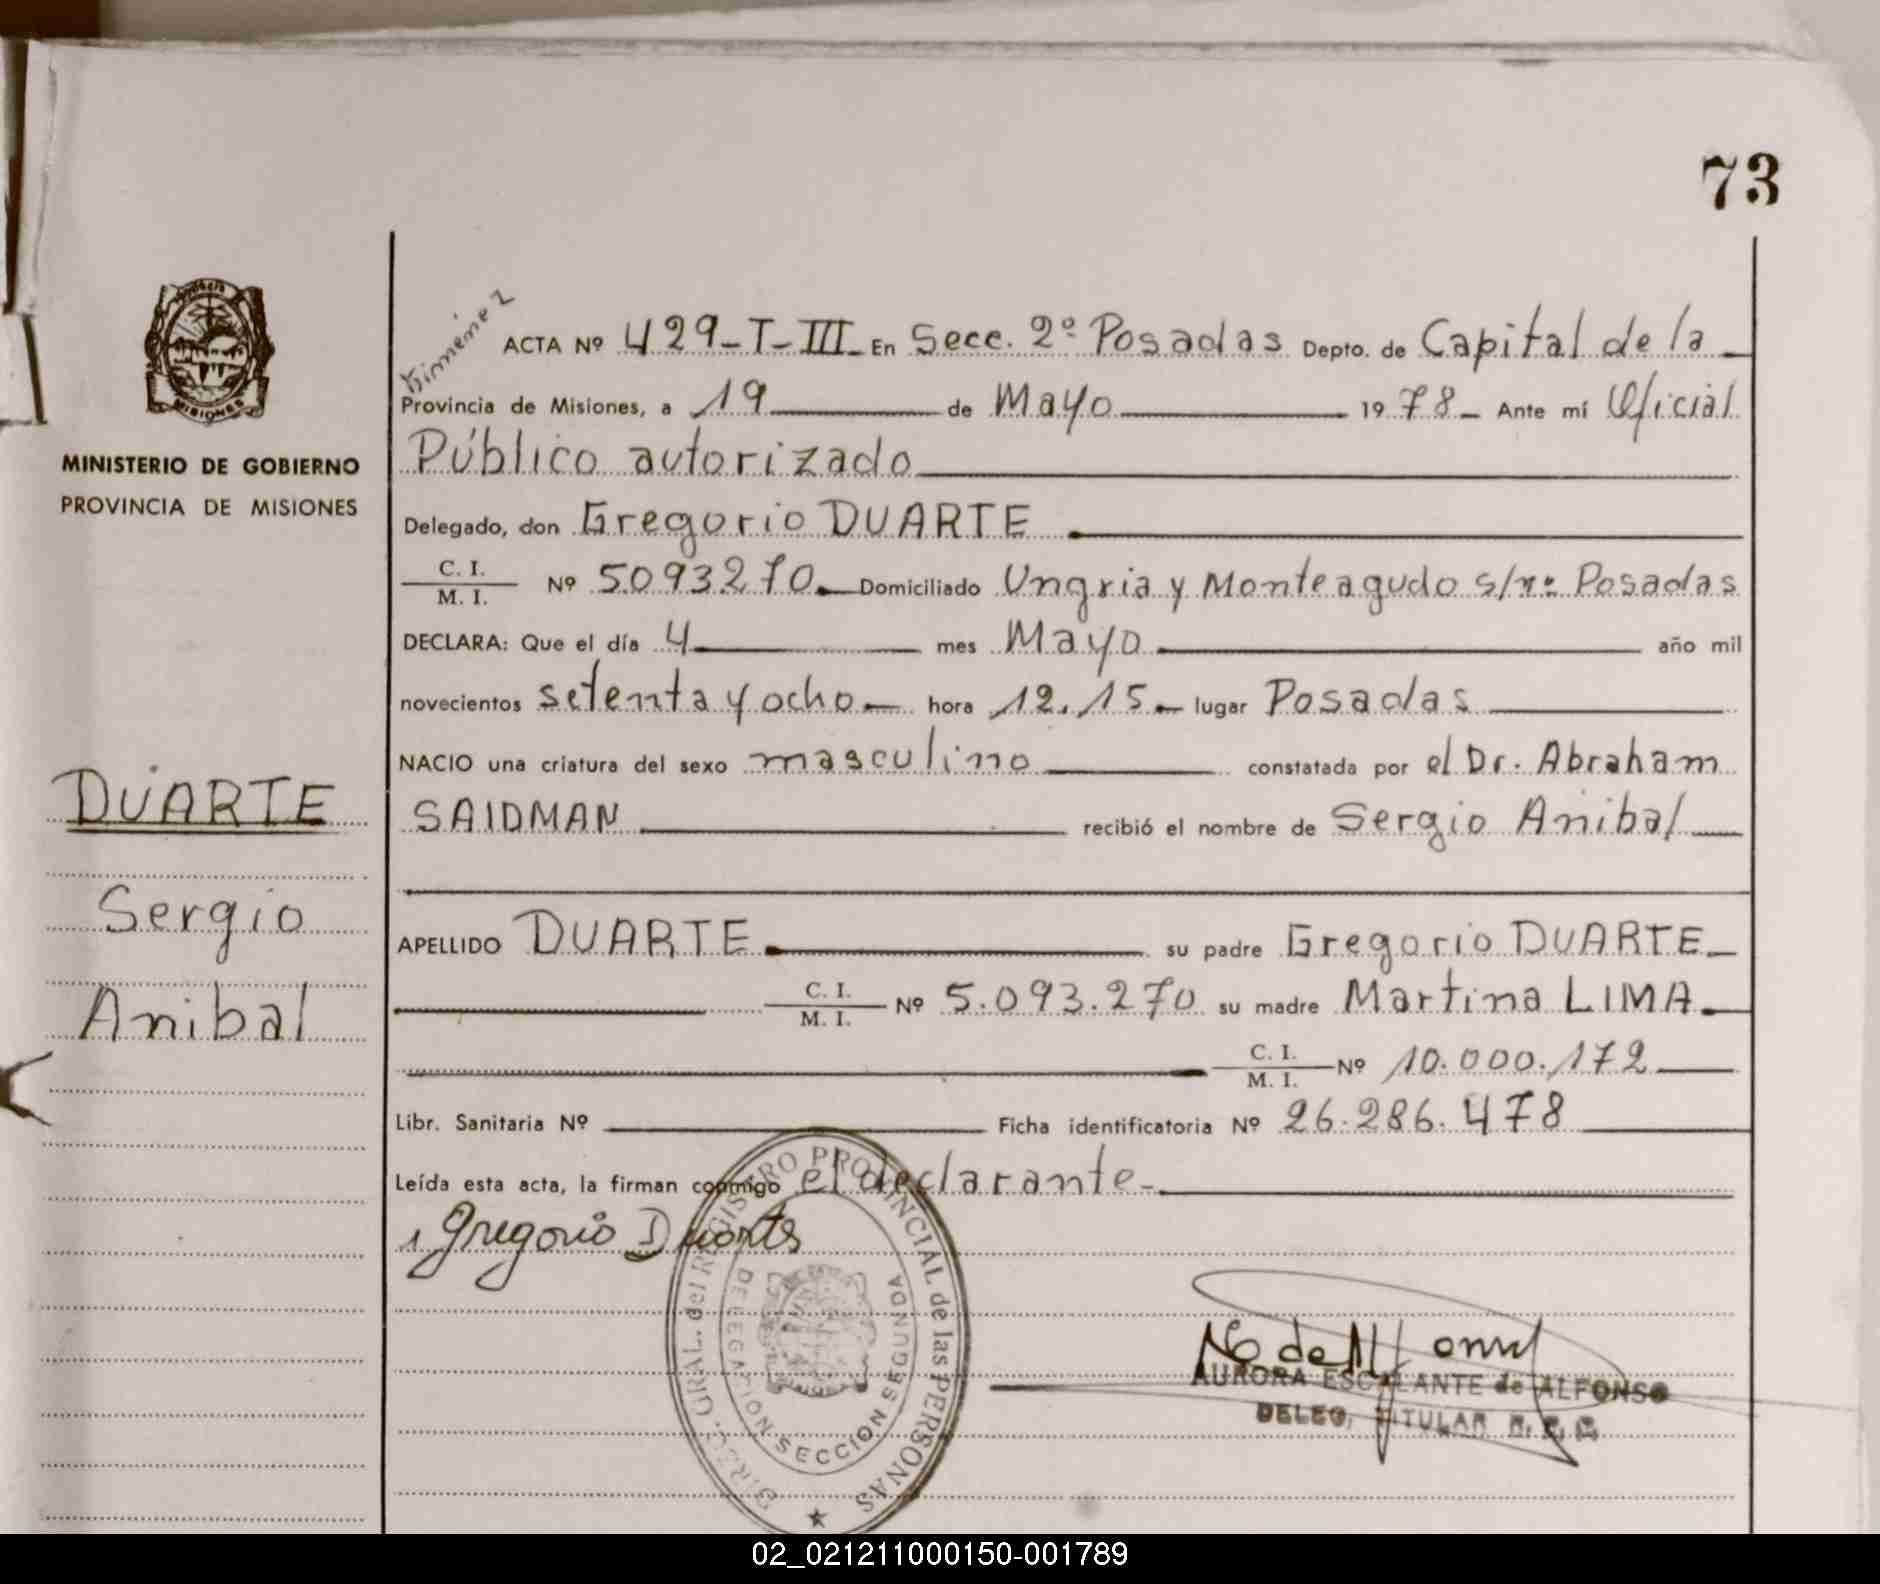 73
MISIONES
MINISTERIO DE GOBIERNO
PROVINCIA DE MISIONES
DUARTE
Sergio
Anibal
Gimenez
ACTA Nº 429-T-III- En Secc. 2º Posadas Depto. de Capital de la
Provincia de Misiones, a 19 de Mayo 1978- Ante mí Oficial
Público autorizado
Delegado, don Gregorio DUARTE
C. I.
M. I. Nº 5093270.- Domiciliado Ungria y Monteagudo s/nº Posadas
DECLARA: Que el día 4 mes Mayo año mil
novecientos setenta y ocho- hora 12.15- lugar Posadas
NACIO una criatura del sexo masculino constatada por el Dr. Abraham
SAIDMAN recibió el nombre de Sergio Anibal
APELLIDO DUARTE su padre Gregorio DUARTE
C. I.
M. I. Nº 5.093.270 su madre Martina LIMA
C. I.
M. I. Nº 10.000.172
Libr. Sanitaria Nº Ficha identificatoria Nº 26.286.478
Leída esta acta, la firman conmigo el declarante-
Gregorio Duarte
DIREC. GRAL. del REGISTRO PROVINCIAL de las PERSONAS
DELEGATION SECCION SEGUNDA
AURORA ESCALANTE de ALFONSO
DELEG. TITULAR
02_021211000150-001789